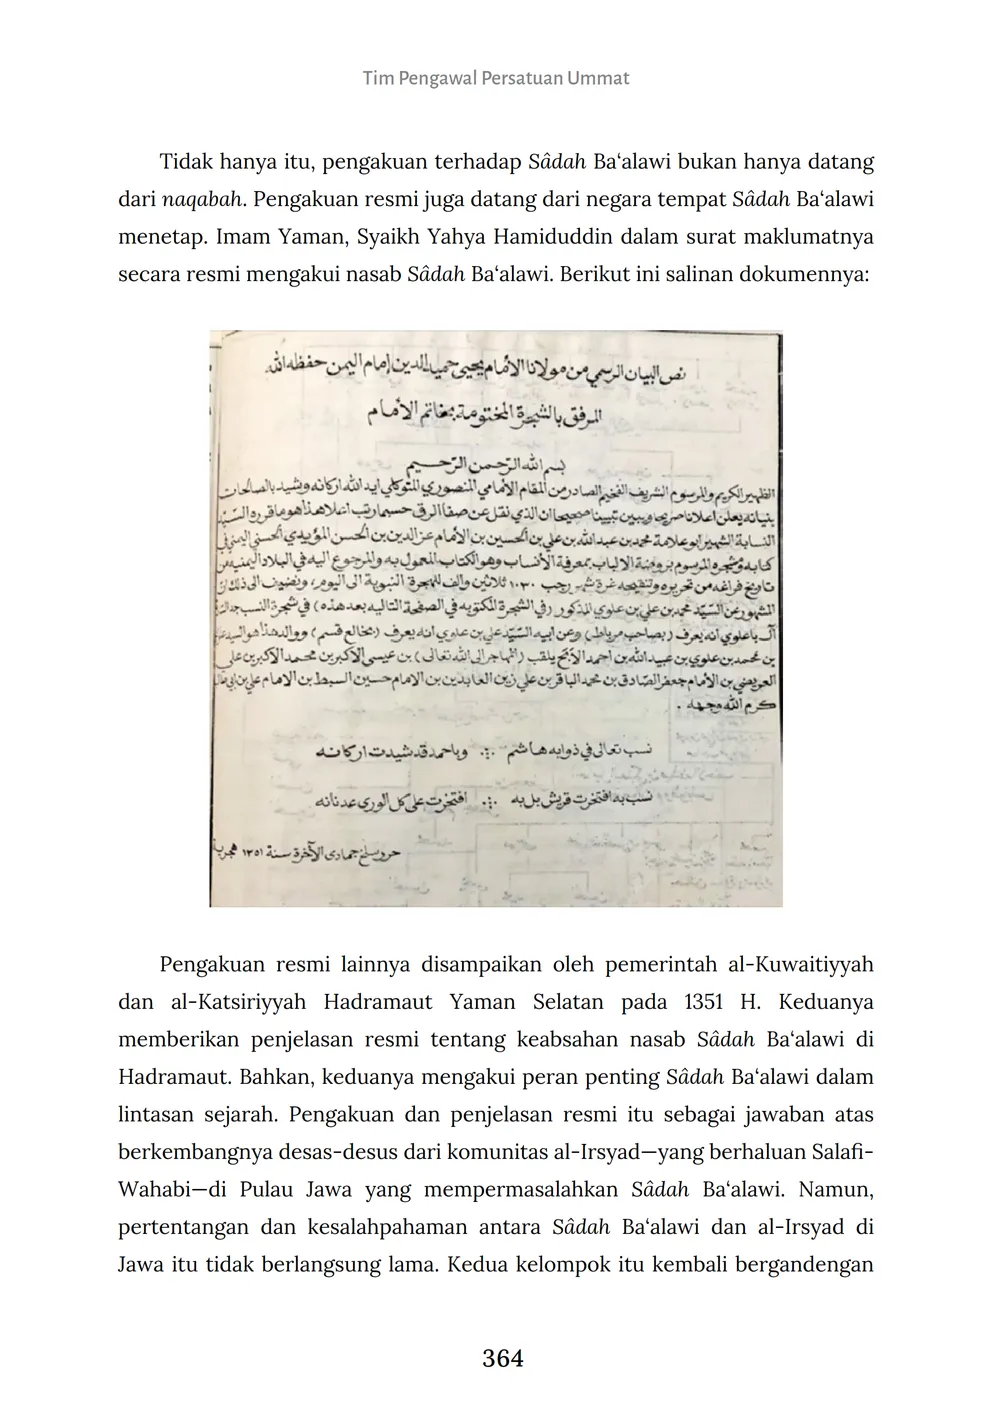 Tim Pengawal Persatuan Ummat
Tidak hanya itu, pengakuan terhadap Sâdah Ba‘alawi bukan hanya datang
dari naqabah. Pengakuan resmi juga datang dari negara tempat Sâdah Ba‘alawi
menetap. Imam Yaman, Syaikh Yahya Hamiduddin dalam surat maklumatnya
secara resmi mengakui nasab Sâdah Ba‘alawi. Berikut ini salinan dokumennya:
نص البيان الرسمي من مولانا الامام يحيى حميد الدين إمام اليمن حفظه الله
المرفق بالشجرة المختومة بخاتم الامام
بسم الله الرحمن الرحيم
الظهير الكريم والمرسوم الشريف الفخيم الصادر من المقام الامامي المنصوري المتوكلي ايد الله اركانه وشيد بالصالحات
بنيانه يعلن اعلانا صريحا ويبين تبيينا صحيحا ان الذي نقل عن صفا الرق حسبما رتب اعلا هذا هو ما قرره السيد
النسابة الشهير ابو علامة محمد بن عبد الله بن علي بن الحسين بن الامام عز الدين بن الحسن المؤيدي الحسني اليمني في
كتابه ومشجره المرسوم بروضة الالباب بمعرفة الأنساب وهو الكتاب المعمول به والمرجوع اليه في البلاد اليمنيه من
تاريخ فراغه من تحريره وتنقيحه غرة شهر رجب ١٠٣٠ ثلاثين والف للهجرة النبوية الى اليوم، ونضيف الى ذلك ان
المشهور عن السيد محمد بن علي بن علوي المذكور (في الشجرة المكتوبه في الصفحة التاليه بعد هذه) في شجرة النسب جد السادة
آل باعلوي انه يعرف (بصاحب مرباط) وعن ابيه السيد علي بن علوي انه يعرف (بخالع قسم) ووالد هذا هو السيد علوي
بن محمد بن علوي بن عبيد الله بن احمد الأبح يلقب (المهاجر الى الله تعالى) بن عيسى الاكبر بن محمد الاكبر بن علي
العريضي بن الامام جعفر الصادق بن محمد الباقر بن علي زين العابدين بن الامام حسين السبط بن الامام علي بن ابي طالب
كرم الله وجهه .
نسب تعالى في ذوابه هاشم .:. وباحمد قد شيدت اركانه
نسب به افتخرت قريش بل به .:. افتخرت على كل الورى عدنانه
حرر سلخ جمادى الآخرة سنة ١٣٥١ هجرية
Pengakuan resmi lainnya disampaikan oleh pemerintah al-Kuwaitiyyah
dan al-Katsiriyyah Hadramaut Yaman Selatan pada 1351 H. Keduanya
memberikan penjelasan resmi tentang keabsahan nasab Sâdah Ba‘alawi di
Hadramaut. Bahkan, keduanya mengakui peran penting Sâdah Ba‘alawi dalam
lintasan sejarah. Pengakuan dan penjelasan resmi itu sebagai jawaban atas
berkembangnya desas-desus dari komunitas al-Irsyad—yang berhaluan Salafi-
Wahabi—di Pulau Jawa yang mempermasalahkan Sâdah Ba‘alawi. Namun,
pertentangan dan kesalahpahaman antara Sâdah Ba‘alawi dan al-Irsyad di
Jawa itu tidak berlangsung lama. Kedua kelompok itu kembali bergandengan
364